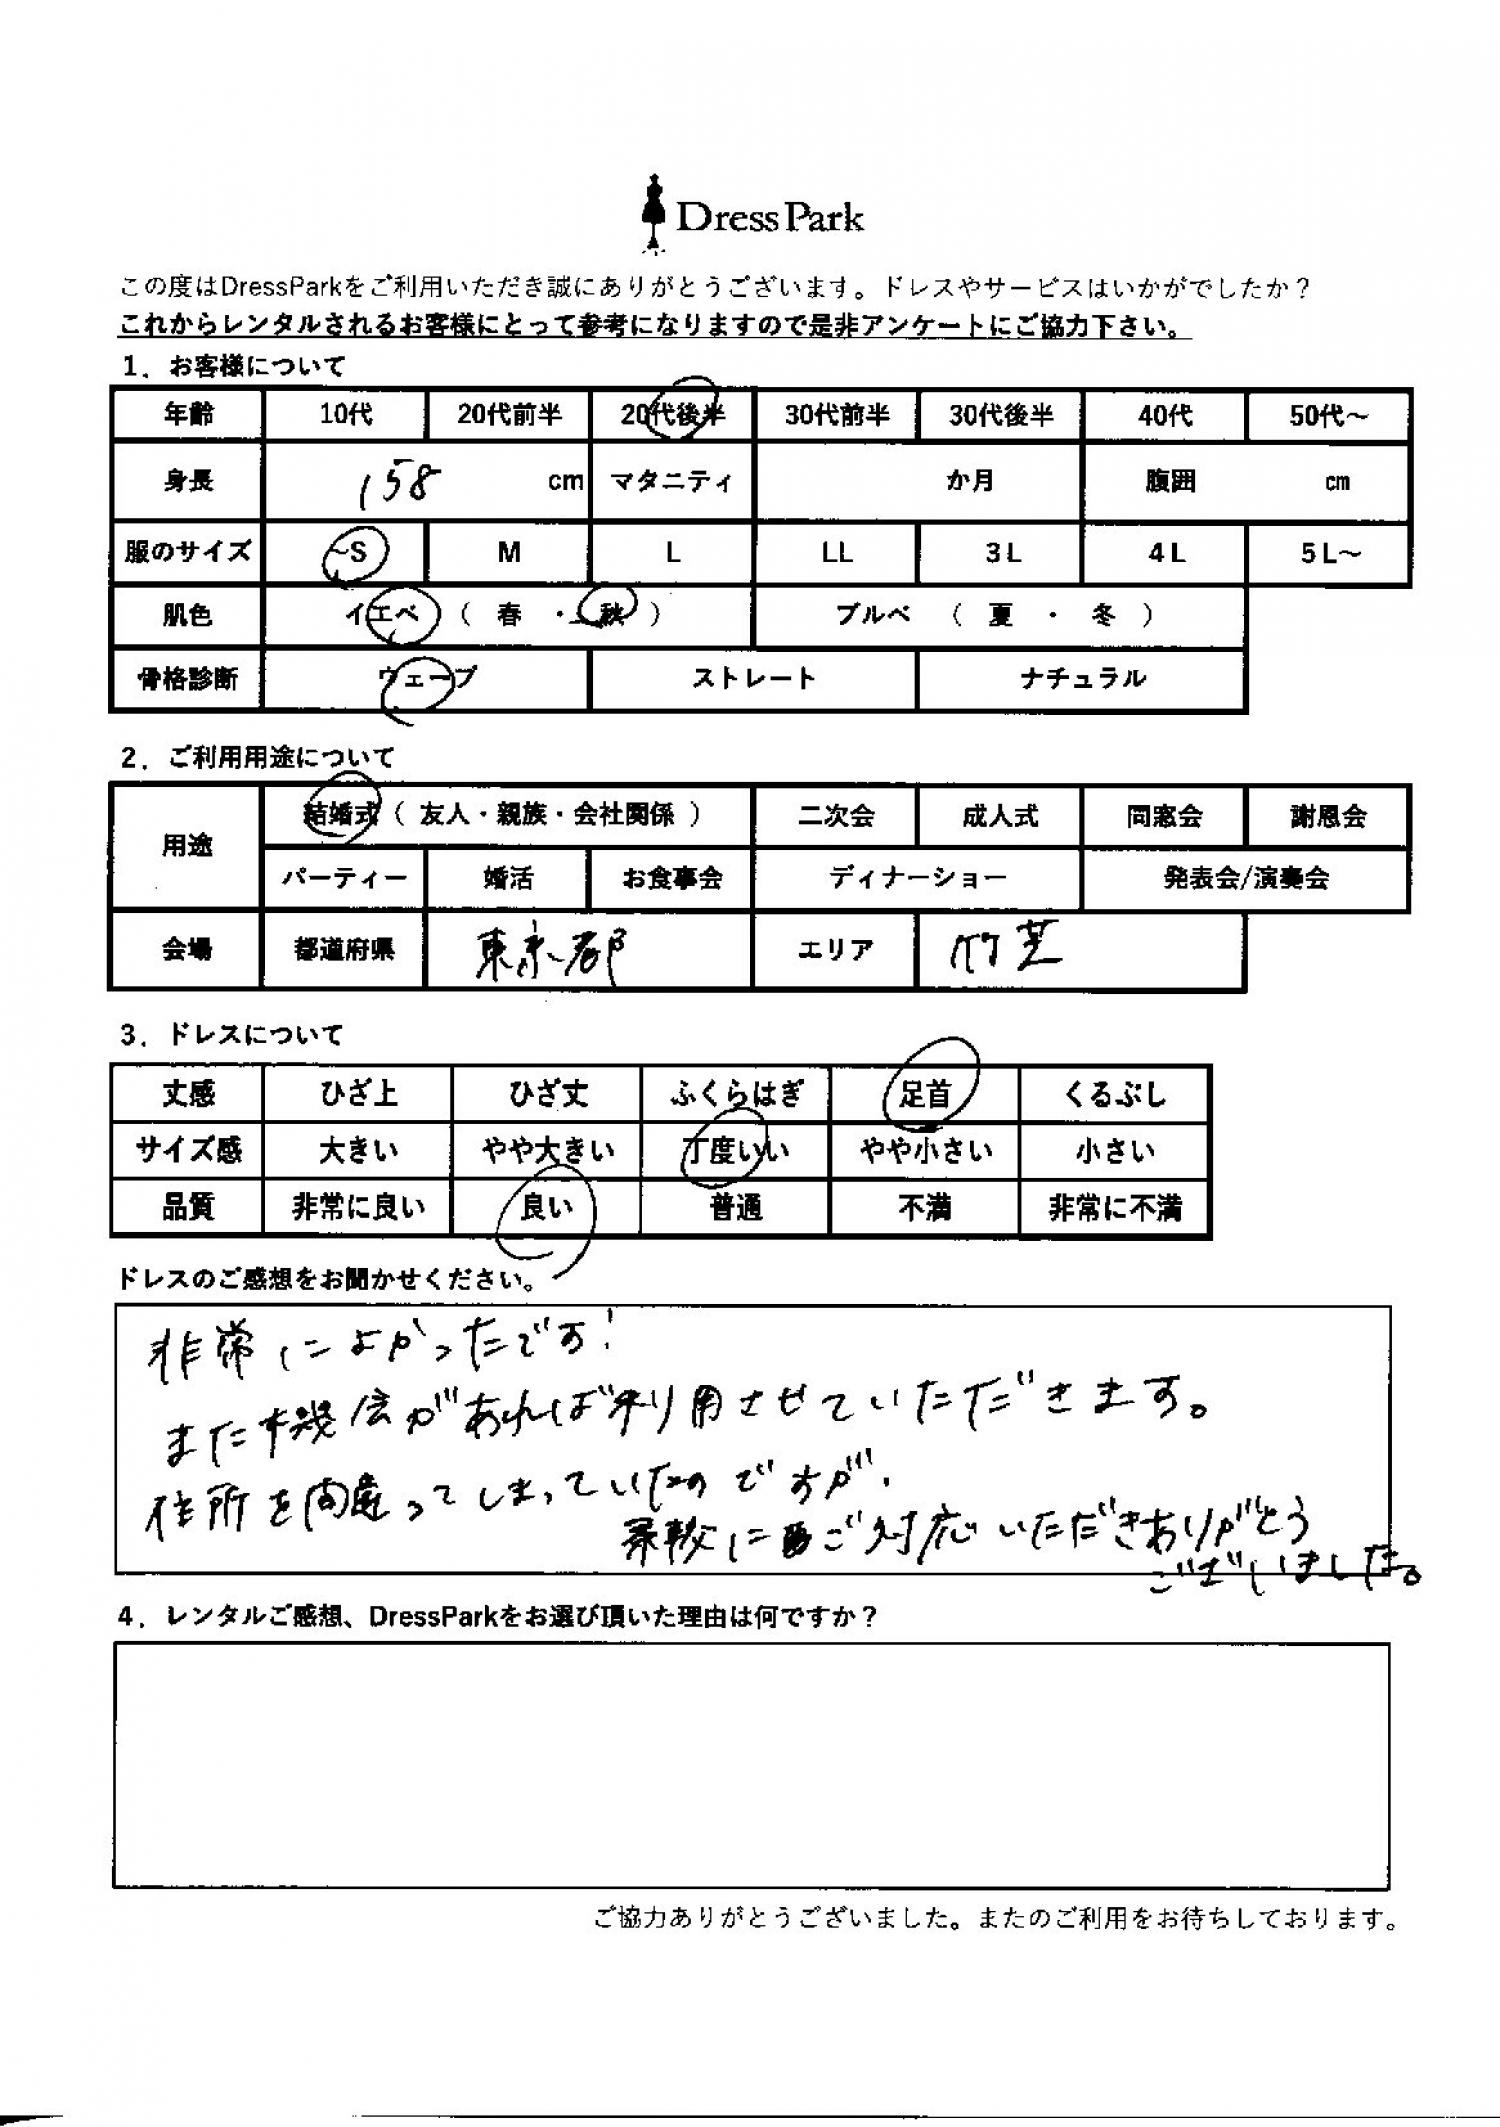 Dress Park
この度はDressParkをご利用いただき誠にありがとうございます。ドレスやサービスはいかがでしたか？
これからレンタルされるお客様にとって参考になりますので是非アンケートにご協力下さい。
1．お客様について
年齢 10代 20代前半 20代後半 30代前半 30代後半 40代 50代～
身長 158 cm マタニティ か月 腹囲 cm
服のサイズ ～S M L LL 3L 4L 5L～
肌色 イエベ（ 春 ・ 秋 ） ブルベ （ 夏 ・ 冬 ）
骨格診断 ウェーブ ストレート ナチュラル
2．ご利用用途について
用途 結婚式（ 友人・親族・会社関係 ） 二次会 成人式 同窓会 謝恩会
パーティー 婚活 お食事会 ディナーショー 発表会/演奏会
会場 都道府県 東京都 エリア 竹芝
3．ドレスについて
丈感 ひざ上 ひざ丈 ふくらはぎ 足首 くるぶし
サイズ感 大きい やや大きい 丁度いい やや小さい 小さい
品質 非常に良い 良い 普通 不満 非常に不満
ドレスのご感想をお聞かせください。
非常によかったです！
また機会があれば利用させていただきます。
住所を間違ってしまっていたのですが、
柔軟にご対応いただきありがとう
ございました。
4．レンタルご感想、DressParkをお選び頂いた理由は何ですか？
ご協力ありがとうございました。またのご利用をお待ちしております。